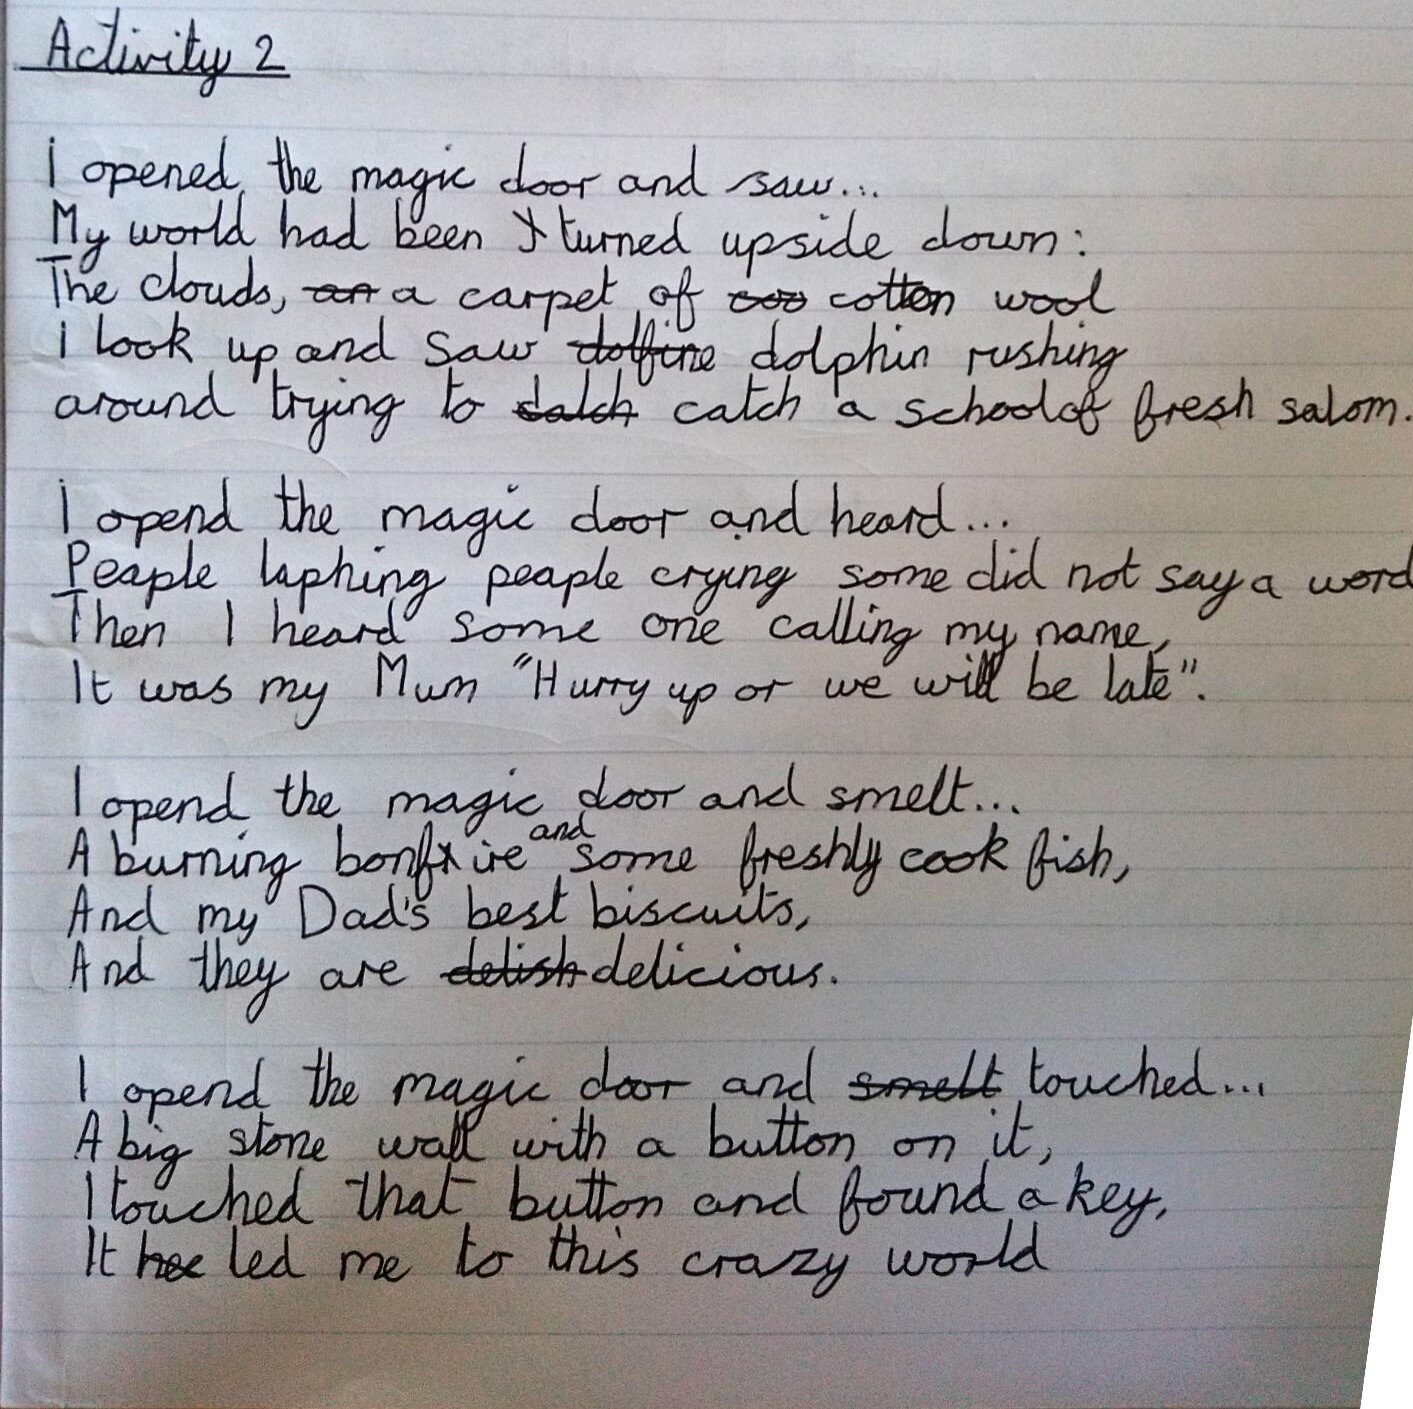 Activity 2
I opened the magic door and saw...
My world had been turned upside down:
The clouds, an a carpet of coo cotton wool
i look up and saw dolfine dolphin rushing
around trying to catch a school of fresh salom.
I opend the magic door and heard...
Peaple laphing peaple crying some did not say a word
Then I heard some one calling my name,
It was my Mum "Hurry up or we will be late".
I opend the magic door and smelt...
A burning bonfire and some freshly cook fish,
And my Dad's best biscuits,
And they are delish delicious.
I opend the magic door and smelt touched...
A big stone wall with a button on it,
I touched that button and found a key,
It led me to this crazy world